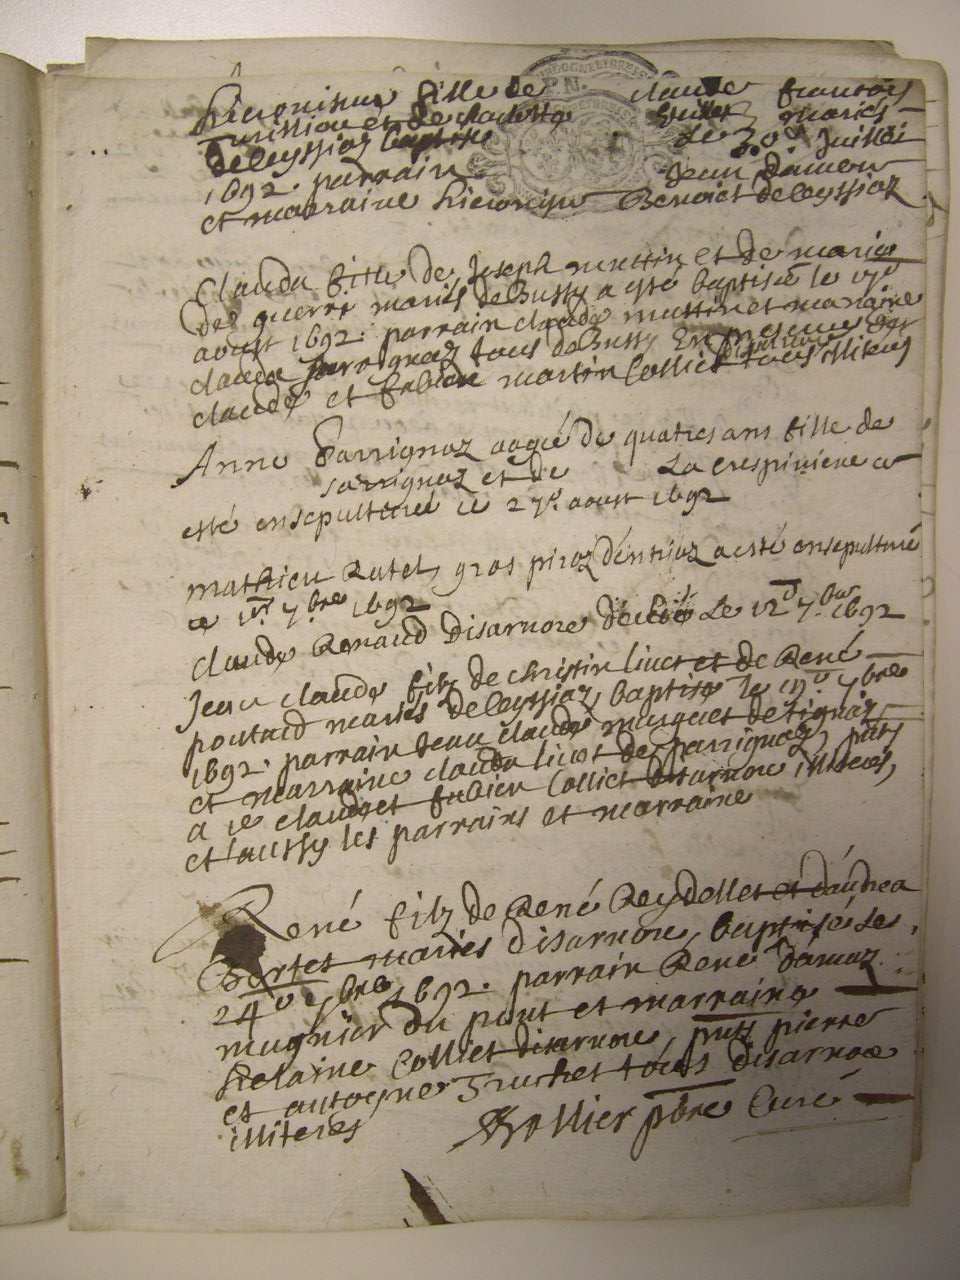 hieronisme fille de claude françois
et de claudette mariés
de leyssiaz baptisée le 30e Juillet
1692. parrain Jean damour
et marraine hieronisme Benoict de leyssiaz
Clauda fille de Joseph mattin et de marie
de guerre mariés de Bussy a esté baptisée le 17e
aoust 1692. parrain claude mattin et maraine
clauda Jarrognaz tous de Bussy En presence
claude et fabien martin Colliet tous illiteres
Anne Sarrignaz aagée de quatres ans fille de
sarrignaz et de La crespiniere a
esté ensepulturée ce 27e. aoust 1692
mathieu Ratel, gros piroz a esté ensepulturé
ce 1er 7bre 1692
claude Renaud disarnore Le 12e 7bre 1692
Jean claude filz de christin liuet et de René
poutard mariés de leyssiaz baptisé le 17e 7bre
1692. parrain Jean claude marquet de
et marraine clauda liuet de parrignaz, pnts
a ce claude et fabien Colliet disarnore illiteres,
et aussy les parrains et marraine
René filz de René Reydellet et d'andrea
Bertet mariés disarnore, baptisé le
24e 7bre 1692. parrain René damaz
mugnier du pont et marraine
helaine Colliet disarnore, pnts pierre
et antoyne Truchet tous disarnore
illiteres
Rollier pbre Curé